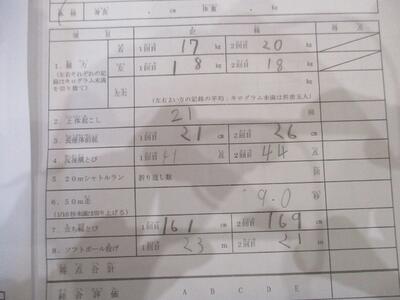 体格 身長 . cm 体重 . kg
項目 記録 得点
1. 握力 右 1回目 17 kg 2回目 20 kg
(左右それぞれの記録はキログラム未満を切り捨て) 左 1回目 18 kg 2回目 18 kg
平均
(左右よい方の記録の平均，キログラム未満は四捨五入)
2. 上体起こし 21 回
3. 長座体前屈 1回目 21 cm 2回目 26 cm
4. 反復横とび 1回目 41 点 2回目 44 点
5. 20mシャトルラン 折り返し数
6. 50m走 9.0 秒
(1/10秒未満は切り上げる)
7. 立ち幅とび 1回目 161 cm 2回目 169 cm
8. ソフトボール投げ 1回目 23 m 2回目 21 m
得点合計
総合評価 A B C D E